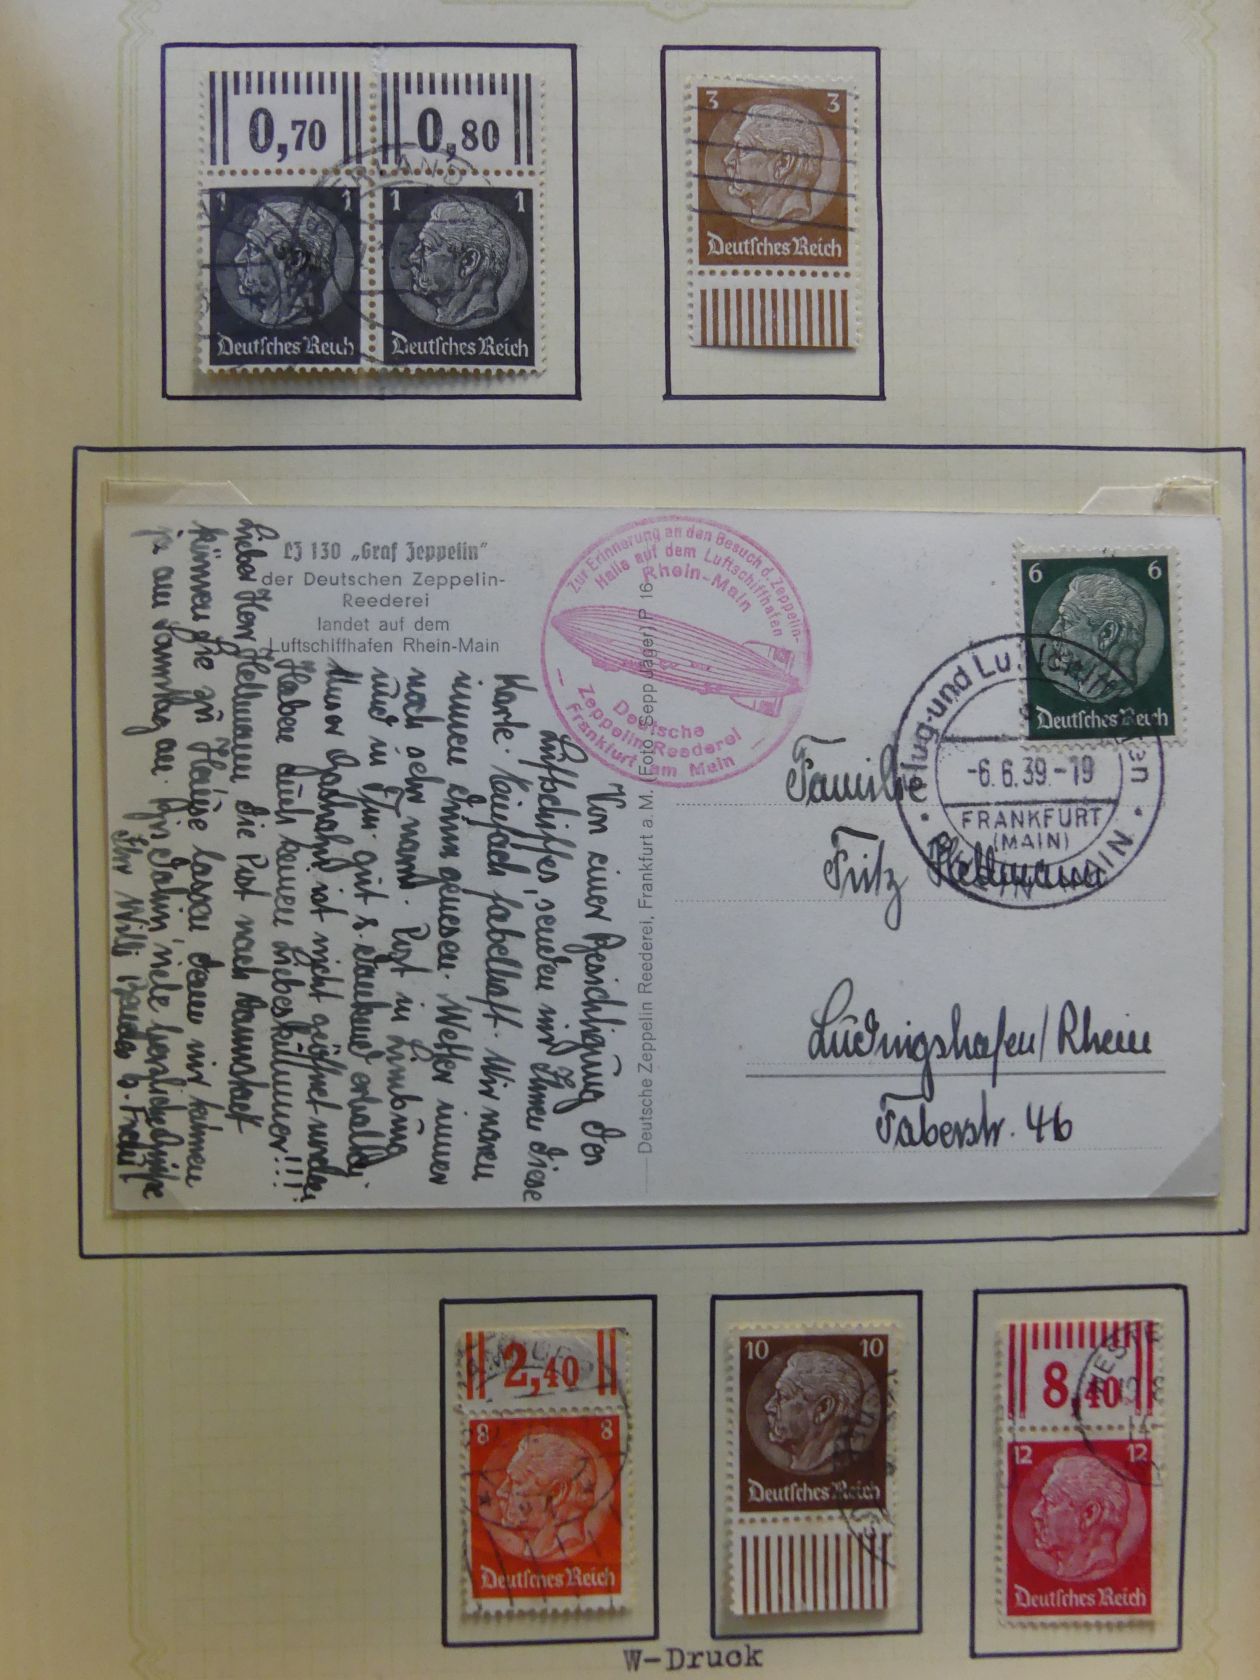 0,70 0,80
1 1 1 1
Deutsches Reich Deutsches Reich
3 3
Deutsches Reich
LZ 130 „Graf Zeppelin“
der Deutschen Zeppelin-
Reederei
landet auf dem
Luftschiffhafen Rhein-Main
Zur Erinnerung an den Besuch d. Zeppelin-
Halle auf dem Luftschiffhafen
Rhein-Main
Deutsche
Zeppelin-Reederei
Frankfurt am Main
Deutsche Zeppelin Reederei, Frankfurt a. M. (Foto Sepp Jäger) P 16
Von einer Besichtigung des
Luftschiffes, senden wir Ihnen diese
Karte. Einfach fabelhaft. Wir waren
innen drinn gewesen. Wetter immer
noch sehr warm. Post in
und in gut u. dankend erhalten.
Unser Gashahn ist nicht geöffnet worden.
Haben auch keinen Liebeskummer!!!
Lieber Herr Hellmann, die Post nach Darmstadt
können Sie zu Hause lassen, denn wir kommen
ja am Samstag an. Bis dahin, viele herzliche Grüße
Ihr Willi
6 6
Deutsches Reich
Flug- und Luftschiffhafen
-6.6.39.-19
FRANKFURT
(MAIN)
RHEIN-MAIN
Familie
Fritz Hellmann
Ludwigshafen/Rhein
Faberstr. 46
2,40
8 8
Deutsches Reich
10 10
Deutsches Reich
8,40
12 12
Deutsches Reich
W-Druck